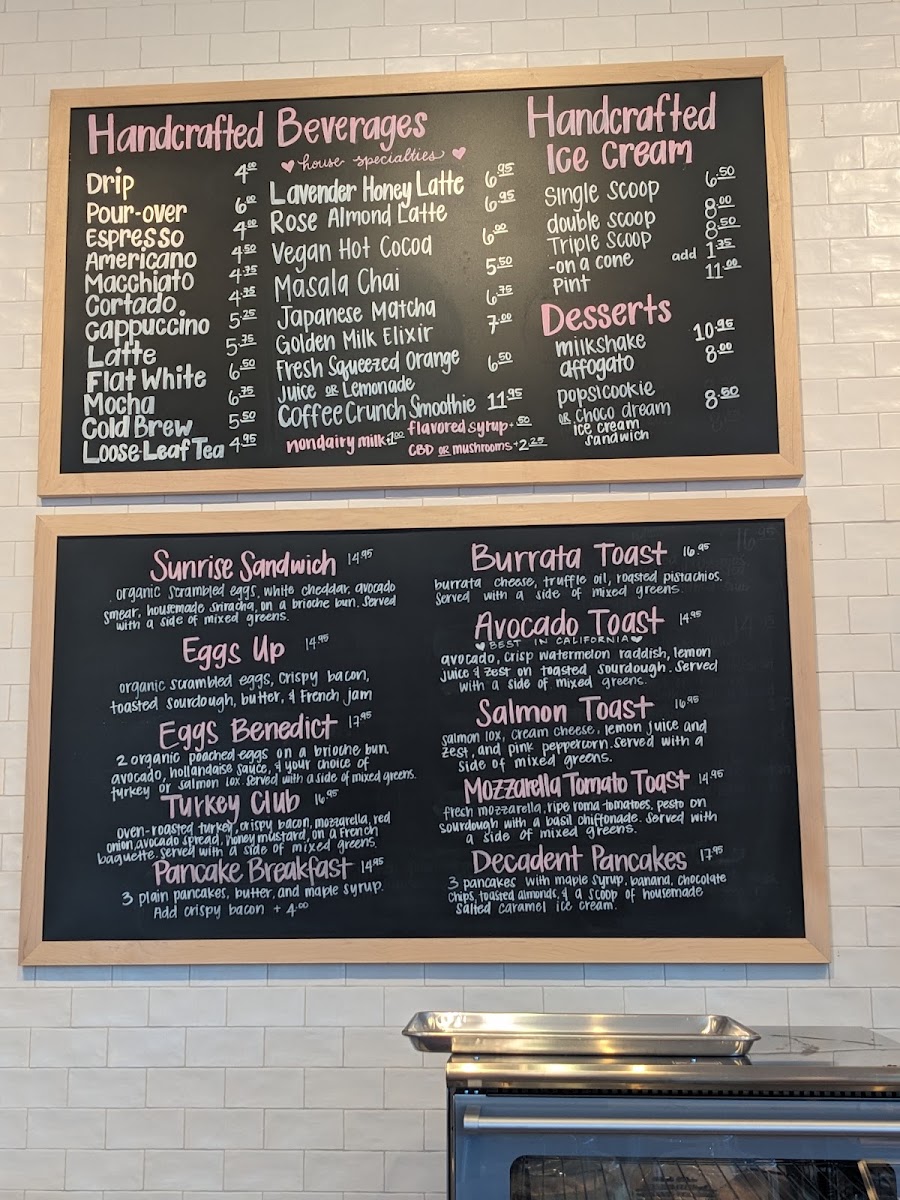 Handcrafted Beverages
Drip 4.00
Pour-over 6.00
Espresso 4.00
Americano 4.50
Macchiato 4.75
Cortado 4.75
Cappuccino 5.25
Latte 5.75
Flat White 6.50
Mocha 6.75
Cold Brew 5.50
Loose-Leaf Tea 4.95
♥ house specialties ♥
Lavender Honey Latte 6.95
Rose Almond Latte 6.95
Vegan Hot Cocoa 6.00
Masala Chai 5.50
Japanese Matcha 6.75
Golden Milk Elixir 7.00
Fresh Squeezed Orange
Juice OR Lemonade 6.50
Coffee Crunch Smoothie 11.95
nondairy milk +1.00
flavored syrup +.50
CBD OR mushrooms +2.25
Handcrafted
Ice Cream
Single Scoop 6.50
double scoop 8.00
Triple Scoop 8.50
-on a cone add 1.35
Pint 11.00
Desserts
milkshake 10.95
affogato 8.00
popsicookie
OR Choco dream 8.50
ice cream
sandwich
Sunrise Sandwich 14.95
organic scrambled eggs, white cheddar, avocado
smear, housemade Sriracha, on a brioche bun. Served
with a side of mixed greens.
Eggs Up 14.95
organic scrambled eggs, crispy bacon,
toasted sourdough, butter, & French jam
Eggs Benedict 17.95
2 organic poached eggs on a brioche bun,
avocado, hollandaise sauce, & your choice of
turkey or salmon lox. Served with a side of mixed greens.
Turkey Club 16.95
oven-roasted turkey, crispy bacon, mozzarella, red
onion, avocado spread, honey mustard, on a French
baguette. Served with a side of mixed greens.
Pancake Breakfast 14.95
3 plain pancakes, butter, and maple syrup.
Add crispy bacon + 4.00
Burrata Toast 16.95
burrata cheese, truffle oil, roasted pistachios.
Served with a side of mixed greens.
Avocado Toast 14.95
♥BEST IN CALIFORNIA♥
avocado, crisp watermelon raddish, lemon
juice & zest on toasted sourdough. Served
with a side of mixed greens.
Salmon Toast 16.95
salmon lox, cream cheese, lemon juice and
zest, and pink peppercorn. Served with a
side of mixed greens.
Mozzarella Tomato Toast 14.95
fresh mozzarella, ripe roma tomatoes, pesto on
sourdough with a basil chiffonade. Served with
a side of mixed greens.
Decadent Pancakes 17.95
3 pancakes with maple syrup, banana, chocolate
chips, toasted almonds, & a scoop of housemade
salted caramel ice cream.